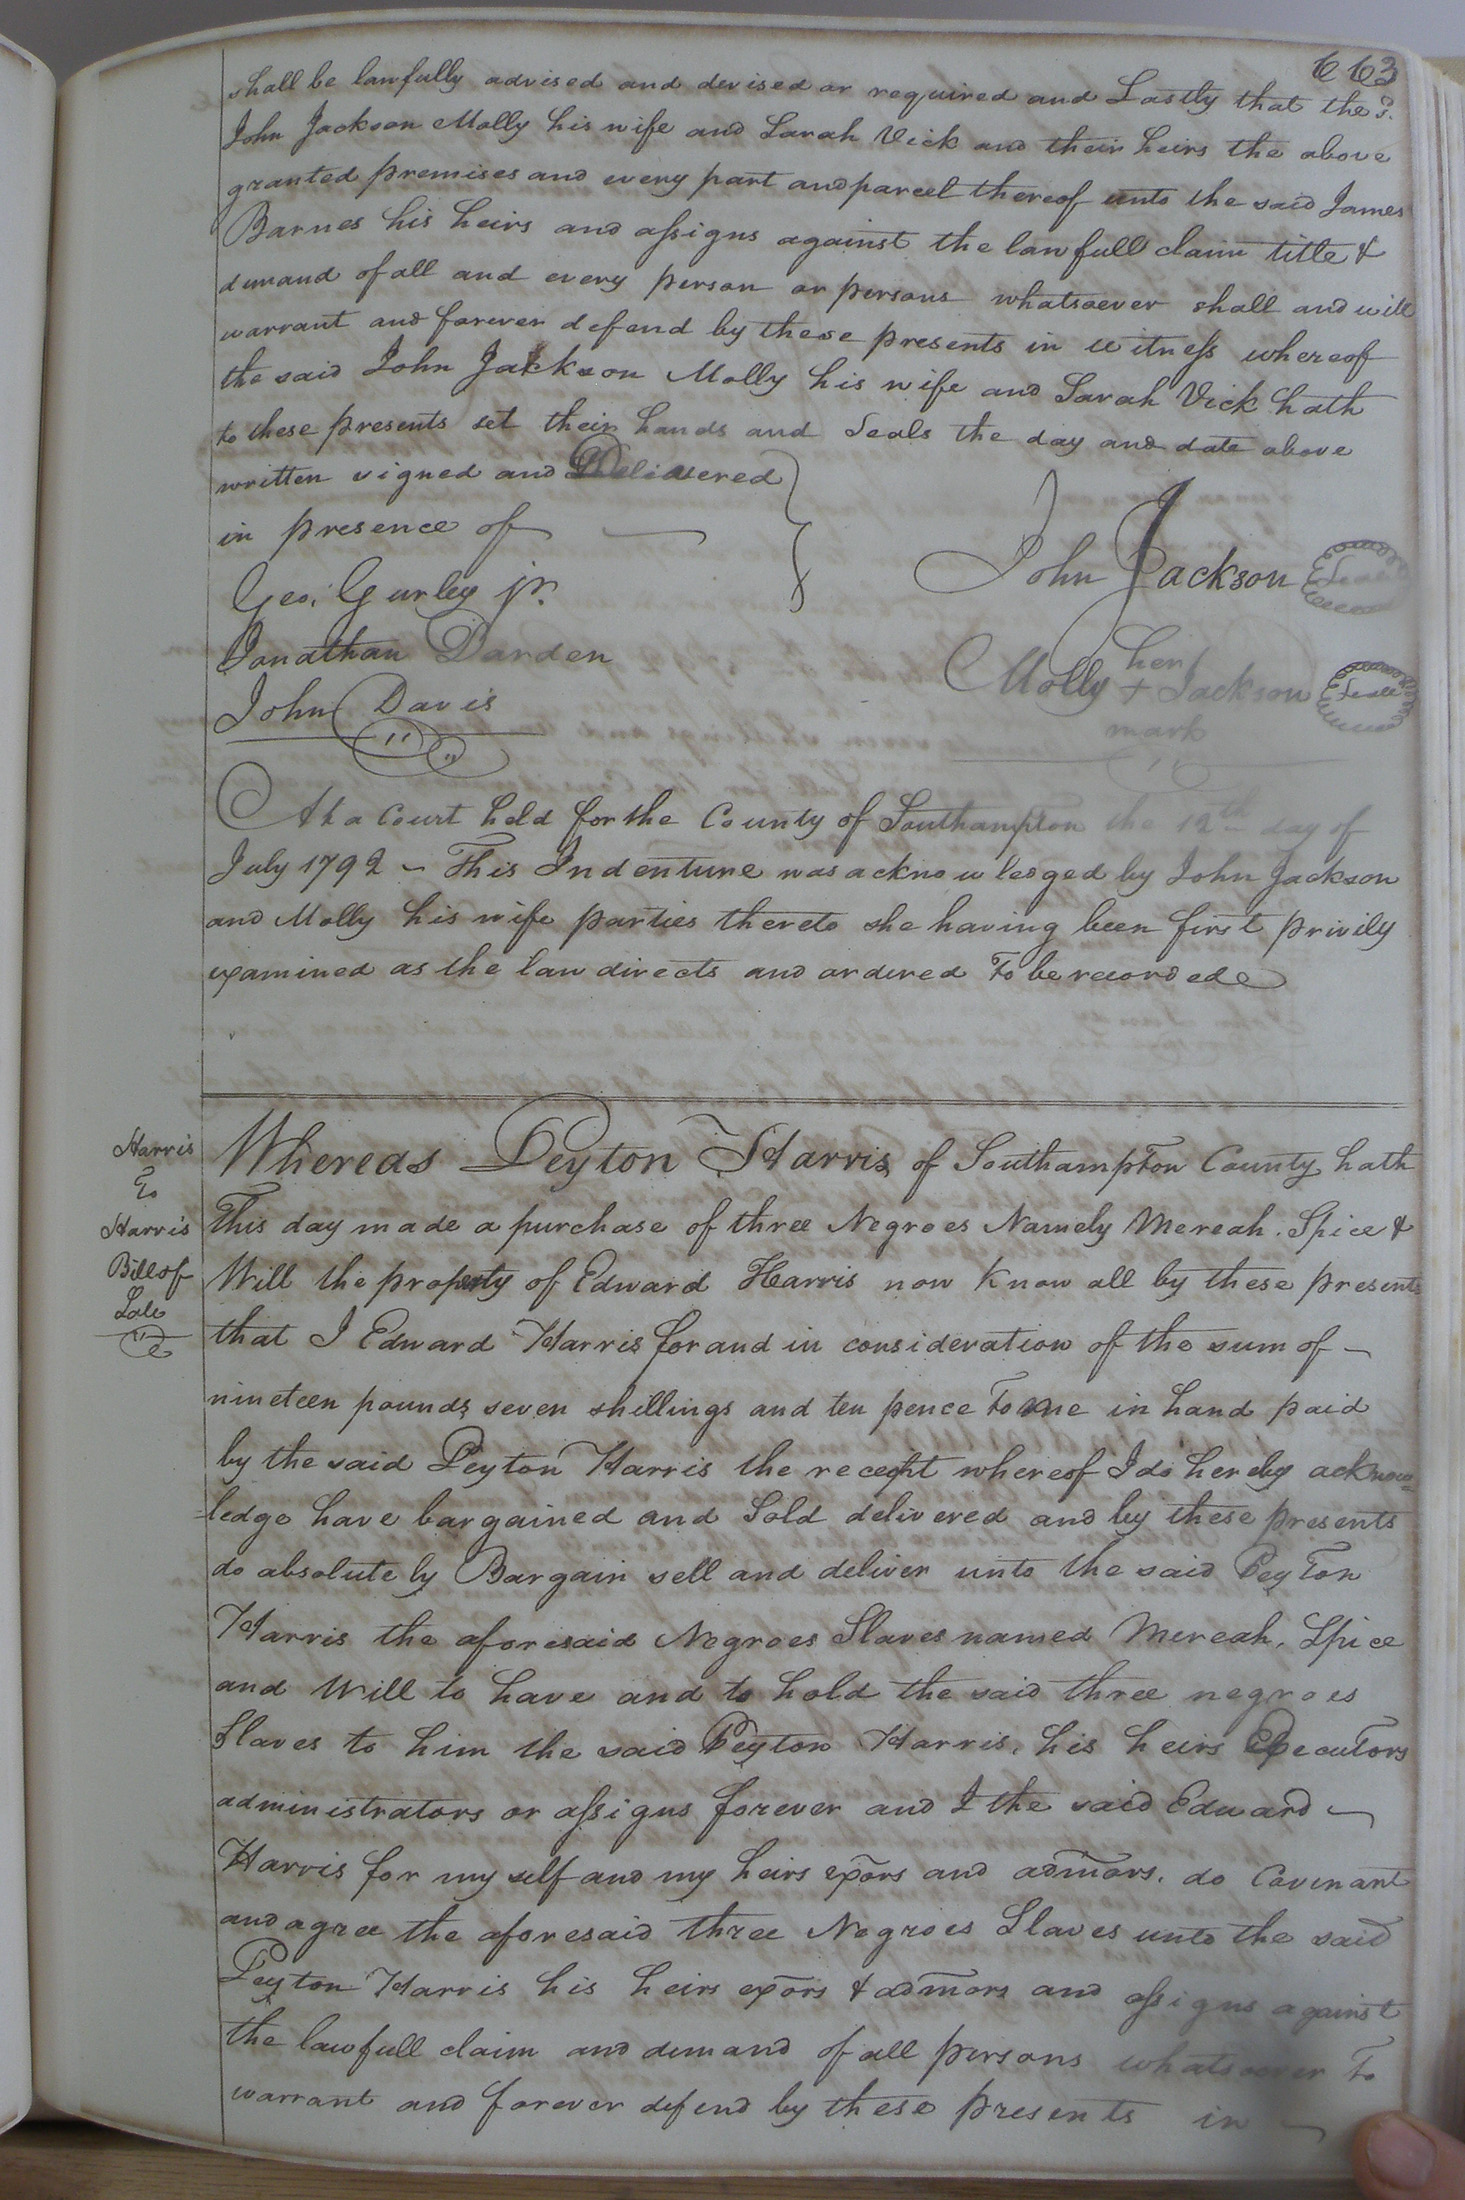 663
shall be lawfully advised and devised or required and Lastly that the sd.
John Jackson Molly his wife and Sarah Vick and their heirs the above
granted premises and every part and parcel thereof unto the said James
Barnes his heirs and assigns against the lawfull claim title &
demand of all and every person or persons whatsoever shall and will
warrant and forever defend by these presents in witness whereof
the said John Jackson Molly his wife and Sarah Vick hath
to these presents set their hands and Seals the day and date above
written signed and Delivered
in presence of
Geo. Gurley jr.
John Jackson Seal
Jonathan Darden
her
Molly + Jackson Seal
mark
John Davis
At a Court held for the County of Southampton the 12th day of
July 1792 – This Indenture was acknowledged by John Jackson
and Molly his wife parties thereto she having been first privily
examined as the law directs and ordered To be recorded
Harris
To
Harris
Bill of
Sale
Whereas Peyton Harris of Southampton County hath
This day made a purchase of three Negroes Namely Mereah. Spice &
Will the property of Edward Harris now Know all by these presents
that I Edward Harris for and in consideration of the sum of –
nineteen pounds seven shillings and ten pence To me in hand paid
by the said Peyton Harris the receipt whereof I do hereby acknow=
=ledge have bargained and Sold delivered and by these presents
do absolutely Bargain sell and deliver unto the said Peyton
Harris the aforesaid Negroes Slaves named Mereah, Spice
and Will to have and to hold the said three negroes
Slaves to him the said Peyton Harris, his heirs Executors
administrators or assigns forever and I the said Edward –
Harris for my self and my heirs exors and admors. do Covenant
and agree the aforesaid three Negroes Slaves unto the said
Peyton Harris his heirs exors & admors and assigns against
the lawfull claim and demand of all persons whatsoever To
warrant and forever defend by these presents in –